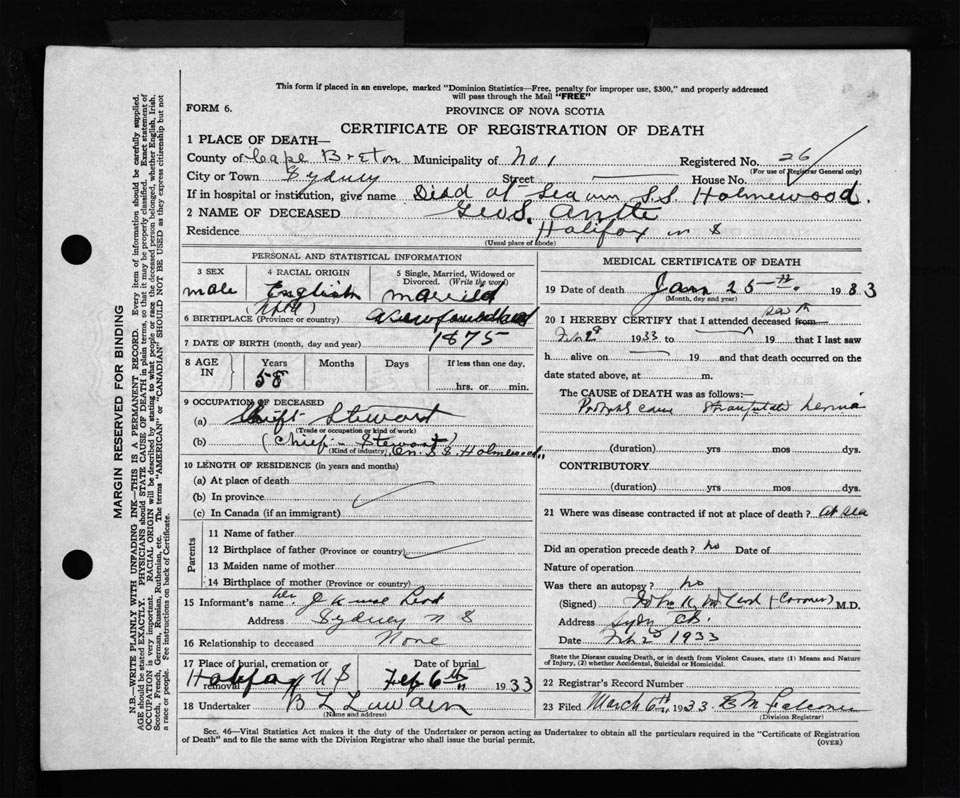 This form if placed in an envelope, marked "Dominion Statistics—Free, penalty for improper use, $300," and properly addressed
will pass through the Mail "FREE"
FORM 6.
PROVINCE OF NOVA SCOTIA
CERTIFICATE OF REGISTRATION OF DEATH
1 PLACE OF DEATH—
County of Cape Breton Municipality of No. 1 Registered No. 26
(For use of Registrar General only)
City or Town Sydney Street House No.
If in hospital or institution, give name Died at Sea on S.S. Holmewood.
2 NAME OF DECEASED Geo S.
Residence Halifax N S
(Usual place of abode)
PERSONAL AND STATISTICAL INFORMATION
3 SEX
male
4 RACIAL ORIGIN
English
5 Single, Married, Widowed or
Divorced. (Write the word)
married
6 BIRTHPLACE (Province or country)
7 DATE OF BIRTH (month, day and year) 1875
8 AGE IN
Years 58
Months
Days
If less than one day,
hrs. or min.
9 OCCUPATION OF DECEASED
(a) Chief Steward
(Trade or occupation or kind of work)
(b) (Chief Steward) On S.S. Holmewood
(Kind of industry)
10 LENGTH OF RESIDENCE (in years and months)
(a) At place of death
(b) In province
(c) In Canada (if an immigrant)
Parents
11 Name of father
12 Birthplace of father (Province or country)
13 Maiden name of mother
14 Birthplace of mother (Province or country)
15 Informant's name
Address Sydney N S
16 Relationship to deceased None
17 Place of burial, cremation or
removal Halifax N S
Date of burial
Feb 6th 1933
18 Undertaker
(Name and address)
MEDICAL CERTIFICATE OF DEATH
19 Date of death Jan 25th 1933
(Month, day and year)
20 I HEREBY CERTIFY that I attended deceased from saw
1933 to 19 that I last saw
h alive on 19 and that death occurred on
date stated above, at m.
The CAUSE OF DEATH was as follows:—
cause hernia
(duration) yrs mos dys.
CONTRIBUTORY
(duration) yrs mos dys.
21 Where was disease contracted if not at place of death? At sea
Did an operation precede death? no Date of
Nature of operation
Was there an autopsy? no
(Signed) (Coroner) M.D.
Address
Date 1933
State the Disease causing Death, or in death from Violent Causes, state (1) Means and Nature
of Injury, (2) whether Accidental, Suicidal or Homicidal.
22 Registrar's Record Number
23 Filed March 6th 1933
(Division Registrar)
Sec. 46—Vital Statistics Act makes it the duty of the Undertaker or person acting as Undertaker to obtain all the particulars required in the "Certificate of Registration
of Death" and to file the same with the Division Registrar who shall issue the burial permit.
(OVER)
MARGIN RESERVED FOR BINDING
N.B.—WRITE PLAINLY WITH UNFADING INK—THIS IS A PERMANENT RECORD. Every item of information should be carefully supplied.
AGE should be stated EXACTLY. PHYSICIANS should STATE CAUSE OF DEATH in plain terms, so that it may be properly classified. Exact statement of
OCCUPATION is very important. RACIAL ORIGIN will be described by stating to what people or race the deceased person belonged, whether English, Irish,
Scotch, French, German, Russian, Ruthenian, etc. The terms "AMERICAN" or "CANADIAN" SHOULD NOT BE USED as they express citizenship but not
a race or people. See instructions on back of Certificate.